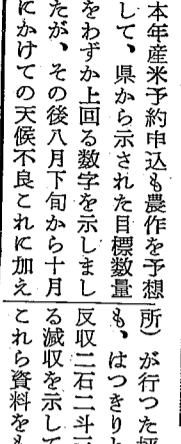 本年産米予約申込も農作を予想
して、県から示された目標数量
をわずか上回る数字を示しまし
たが、その後八月下旬から十月
にかけての天候不良これに加え
所）が行つた坪
も、はつきり
反収二石二斗
る減収を示して
これら資料をも